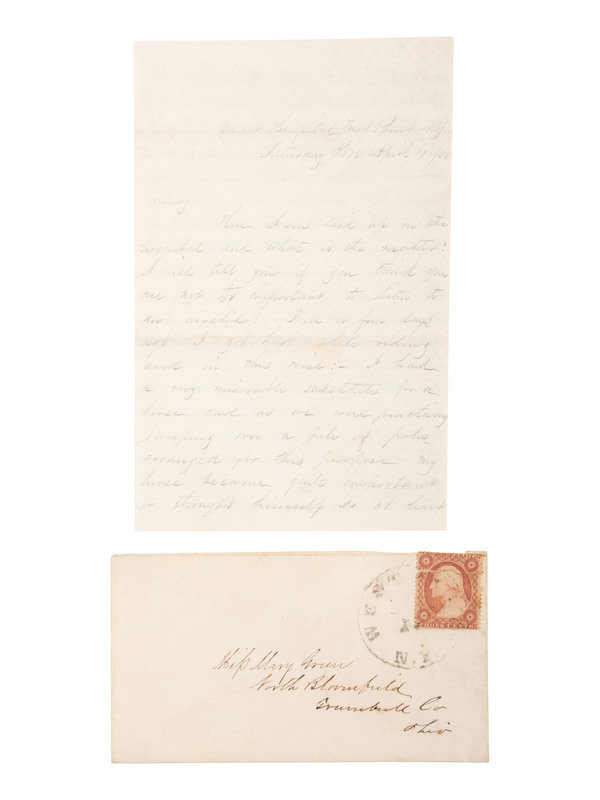 Cadet Hospital, West Point N.Y.
Saturday Eve April 17/58
Mary,
Here I am laid up in the
hospital and what is the matter?
I will tell you if you think you
are not to important to listen to
an invalid! Three or four days
ago I got hurt while riding
and in this wise:- I had
a very miserable substitute for a
horse and as we were practising
jumping over a pile of poles
arranged for this purpose, my
horse became quite important
or thought himself so at least
WEST
N.Y.
THREE CENTS
Miss Mary Green
North Bloomfield
Trumbull Co
Ohio